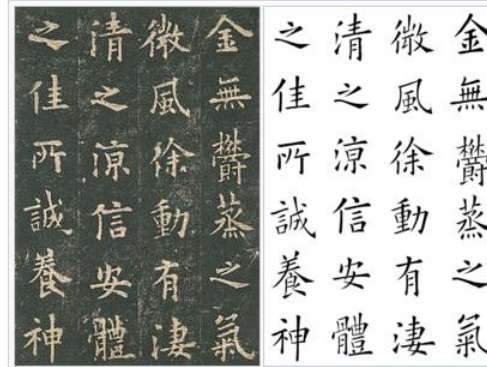 金無欝蒸之氣
微風徐動有淒
清之涼信安體
之佳所誠養神
金無欝蒸之氣
微風徐動有淒
清之涼信安體
之佳所誠養神